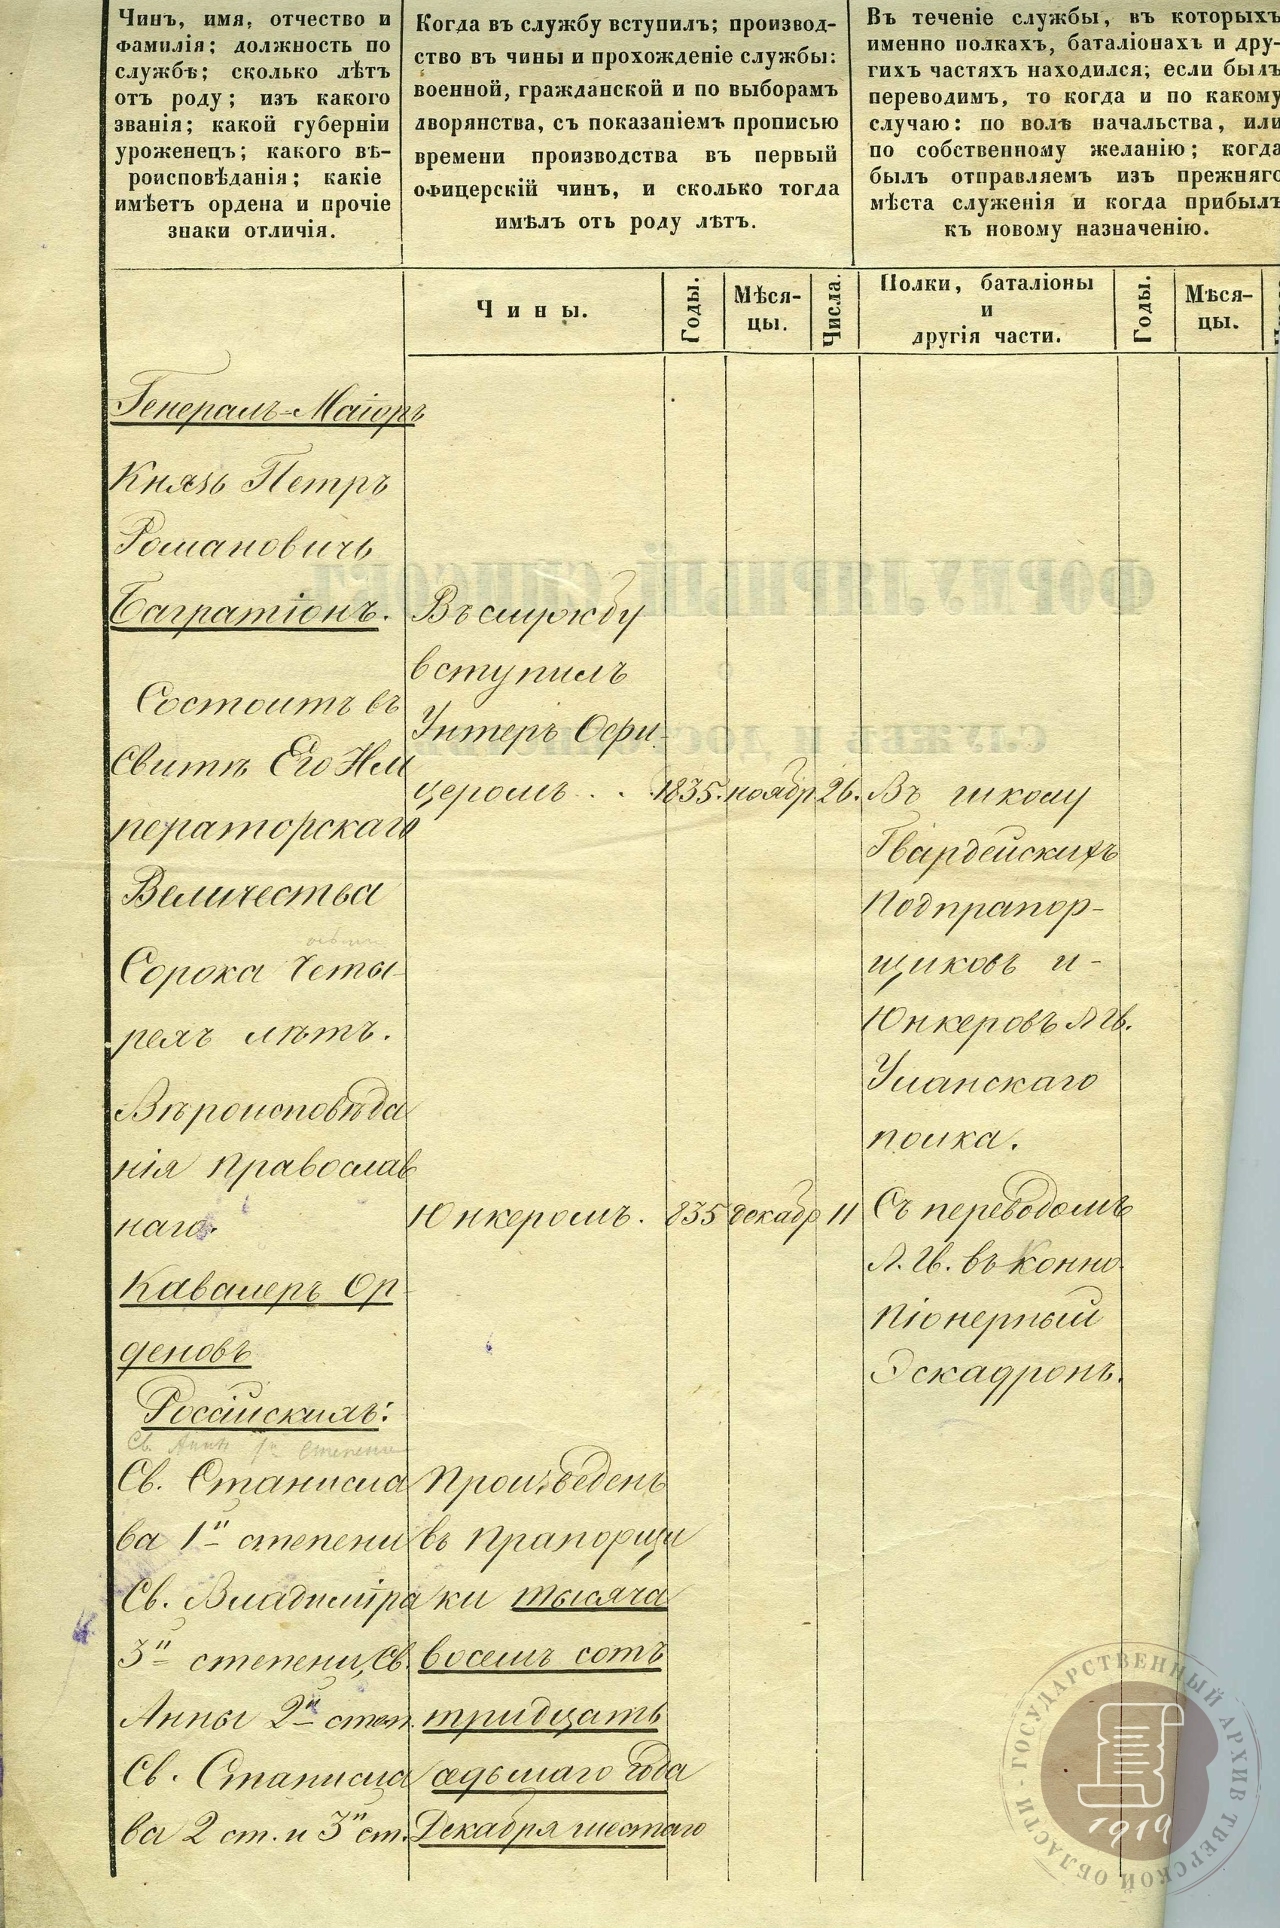 Чинъ, имя, отчество и
фамилія; должность по
службѣ; сколько лѣтъ
отъ роду; изъ какого
званія; какой губерніи
уроженецъ; какого вѣ-
роисповѣданія; какіе
имѣетъ ордена и прочіе
знаки отличія.
Когда въ службу вступилъ; производ-
ство въ чины и прохожденіе службы:
военной, гражданской и по выборамъ
дворянства, съ показаніемъ прописью
времени производства въ первый
офицерскій чинъ, и сколько тогда
имѣлъ отъ роду лѣтъ.
Въ теченіе службы, въ которыхъ
именно полкахъ, баталіонахъ и дру-
гихъ частяхъ находился; если былъ
переводимъ, то когда и по какому
случаю: по волѣ начальства, или
по собственному желанію; когда
былъ отправляемъ изъ прежняго
мѣста служенія и когда прибылъ
къ новому назначенію.
Чины.
Годы.
Мѣся-
цы.
Числа.
Полки, баталіоны
и
другія части.
Годы.
Мѣся-
цы.
Генералъ-Маіоръ
Князь Петръ
Романовичъ
Багратіонъ.
Состоитъ въ
Свитѣ Его Им
ператорскаго
Величества
Сорока Четы-
рехъ лѣтъ.
Вѣроисповѣда
нія Православ
наго.
Кавалеръ Ор-
деновъ
Россійскихъ:
Св. Анны 1й степени
Св. Станисла
ва 1й степени
Св. Владиміра
3й степени, Св.
Анны 2й степ.
Св. Станисла
ва 2 ст. и 3й ст.
Въ службу
вступилъ
Унтеръ Офи-
церомъ . . 1835. ноябр. 26.
Юнкеромъ. 835 декабр 11
Произведенъ
въ Прапорщи
ки тысяча
восемь сотъ
тридцать
седьмаго года
Декабря шестаго
Въ школу
Гвардейскихъ
Подпрапор-
щиковъ и-
Юнкеровъ Л Гв.
Уланскаго
полка.
Съ переводомъ
Л. Гв. въ Конно-
Піонерный
Эскадронъ.
ФОРМУЛЯРНЫЙ СПИСОКЪ
О
СЛУЖБѢ И ДОСТОИНСТВѢ
ГОСУДАРСТВЕННЫЙ АРХИВ ТВЕРСКОЙ ОБЛАСТИ
1919